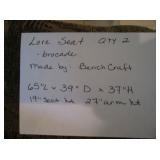 Love Seat QTY 2
- brocade
made by: BenchCraft
65"L x 39" D x 37"H
19" Seat ht 27" arm ht